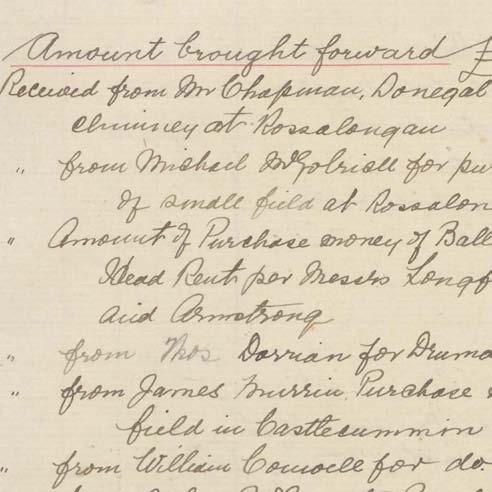 Amount brought forward £
Received from Mr Chapman, Donegal
chimney at Rossalongan
" from Michael McGolrick for pur
of small field at Rossalon
" Amount of Purchase money of Ball
Head Rent per Messrs Longf
and Armstrong
" from Thos Dorrian for Drum
" from James Murrin Purchase
field in Castlecummon
" from William Conwell for do.